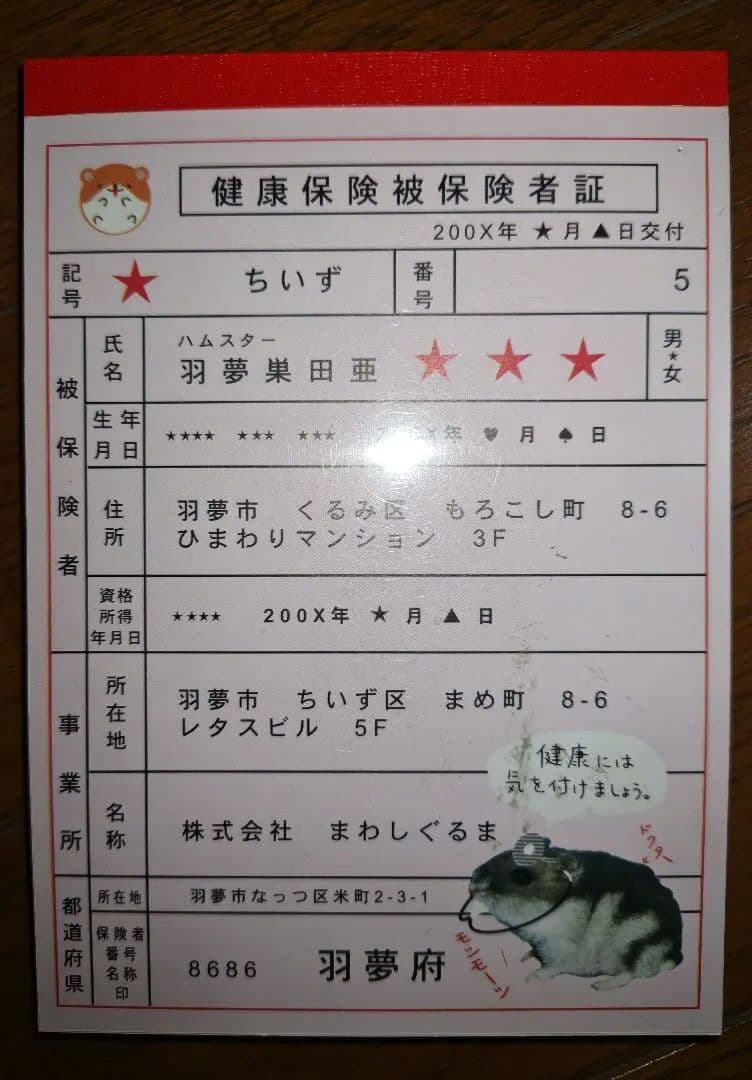 健康保険被保険者証
200X年 ★月▲日交付
記号 ★ ちいず 番号 5
被保険者
氏名
ハムスター
羽夢巣田亜 ★ ★ ★
男★女
生年月日 ★★★★ ★★★ ★★★ 年 ♥ 月 ♠ 日
住所
羽夢市 くるみ区 もろこし町 8-6
ひまわりマンション 3F
資格所得年月日 ★★★★ 200X年 ★ 月 ▲ 日
事業所
所在地
羽夢市 ちいず区 まめ町 8-6
レタスビル 5F
健康には
気を付けましょう。
名称 株式会社 まわしぐるま
ドクター
都道府県
所在地 羽夢市なっつ区米町2-3-1
保険者番号名称印 8686 羽夢府